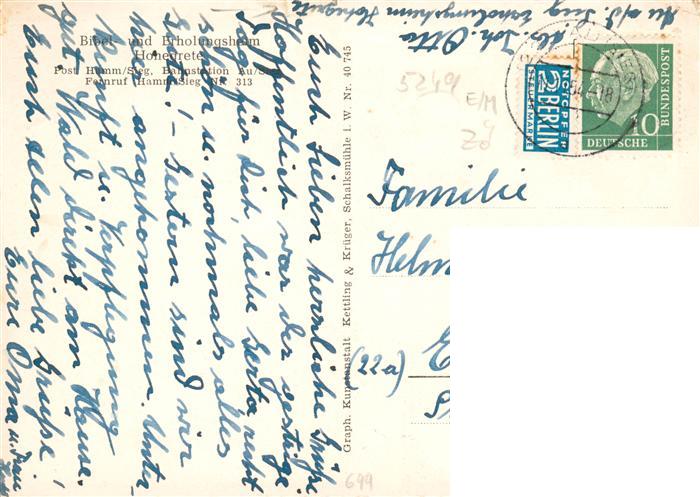 Bibel- und Erholungsheim
Hohegrete
Post Hamm/Sieg, Bahnstation Au/Sieg
Fernruf Hamm/Sieg Nr. 313
Euch Lieben herrliche Grüße
Hoffentlich war der gestrige
Tag für Dich, liebe Gerta, recht
schön u. nochmals alles
Gute! - Gestern sind wir
angekommen. Unter-
kunft u. Verpflegung
gut. Wald direkt am Hause.
Euch allen liebe Grüße,
Eure Oma u.
Graph. Kunstanstalt Kettling & Krüger, Schalksmühle i. W. Nr. 40 745
Abs. Joh. Otto
Au a/d. Sieg Erholungsheim Hohegrete
5249
E/M
NOTOPFER
2 BERLIN
STEUERMARKE
10
DEUTSCHE
BUNDESPOST
Familie
Helm
(22a)
699